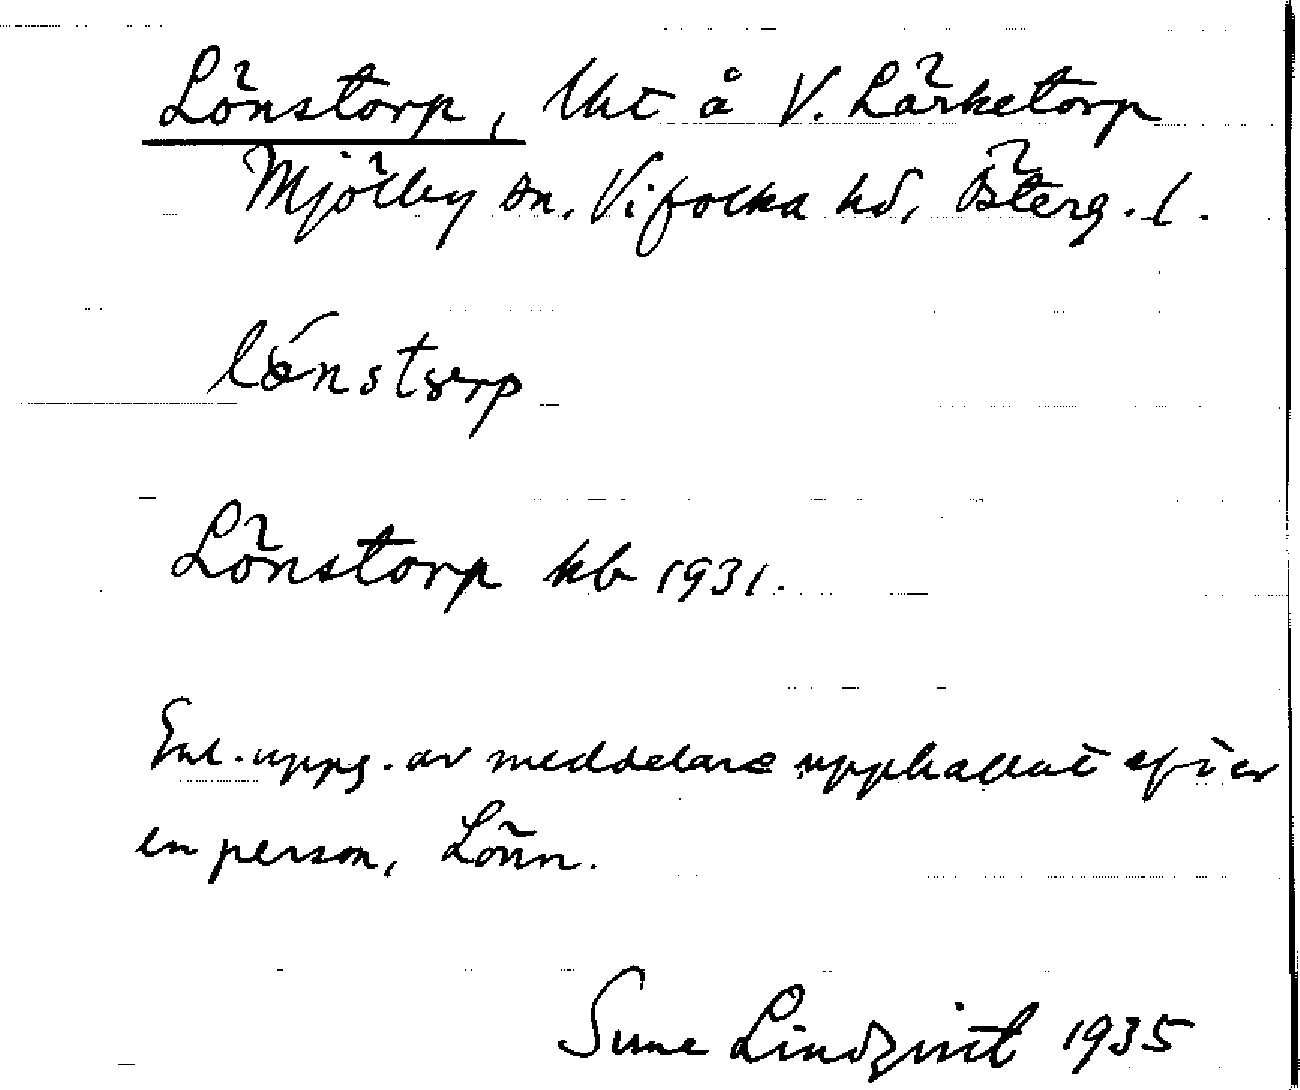 Lönstorp, lht å V. Lärketorp
Mjölby sn. Vifolka hd, Österg. l.
Lönstorp kb 1931.
Enl. uppg. av meddelare uppkallat efter
en person, Lönn.
Sune Lindqvist 1935